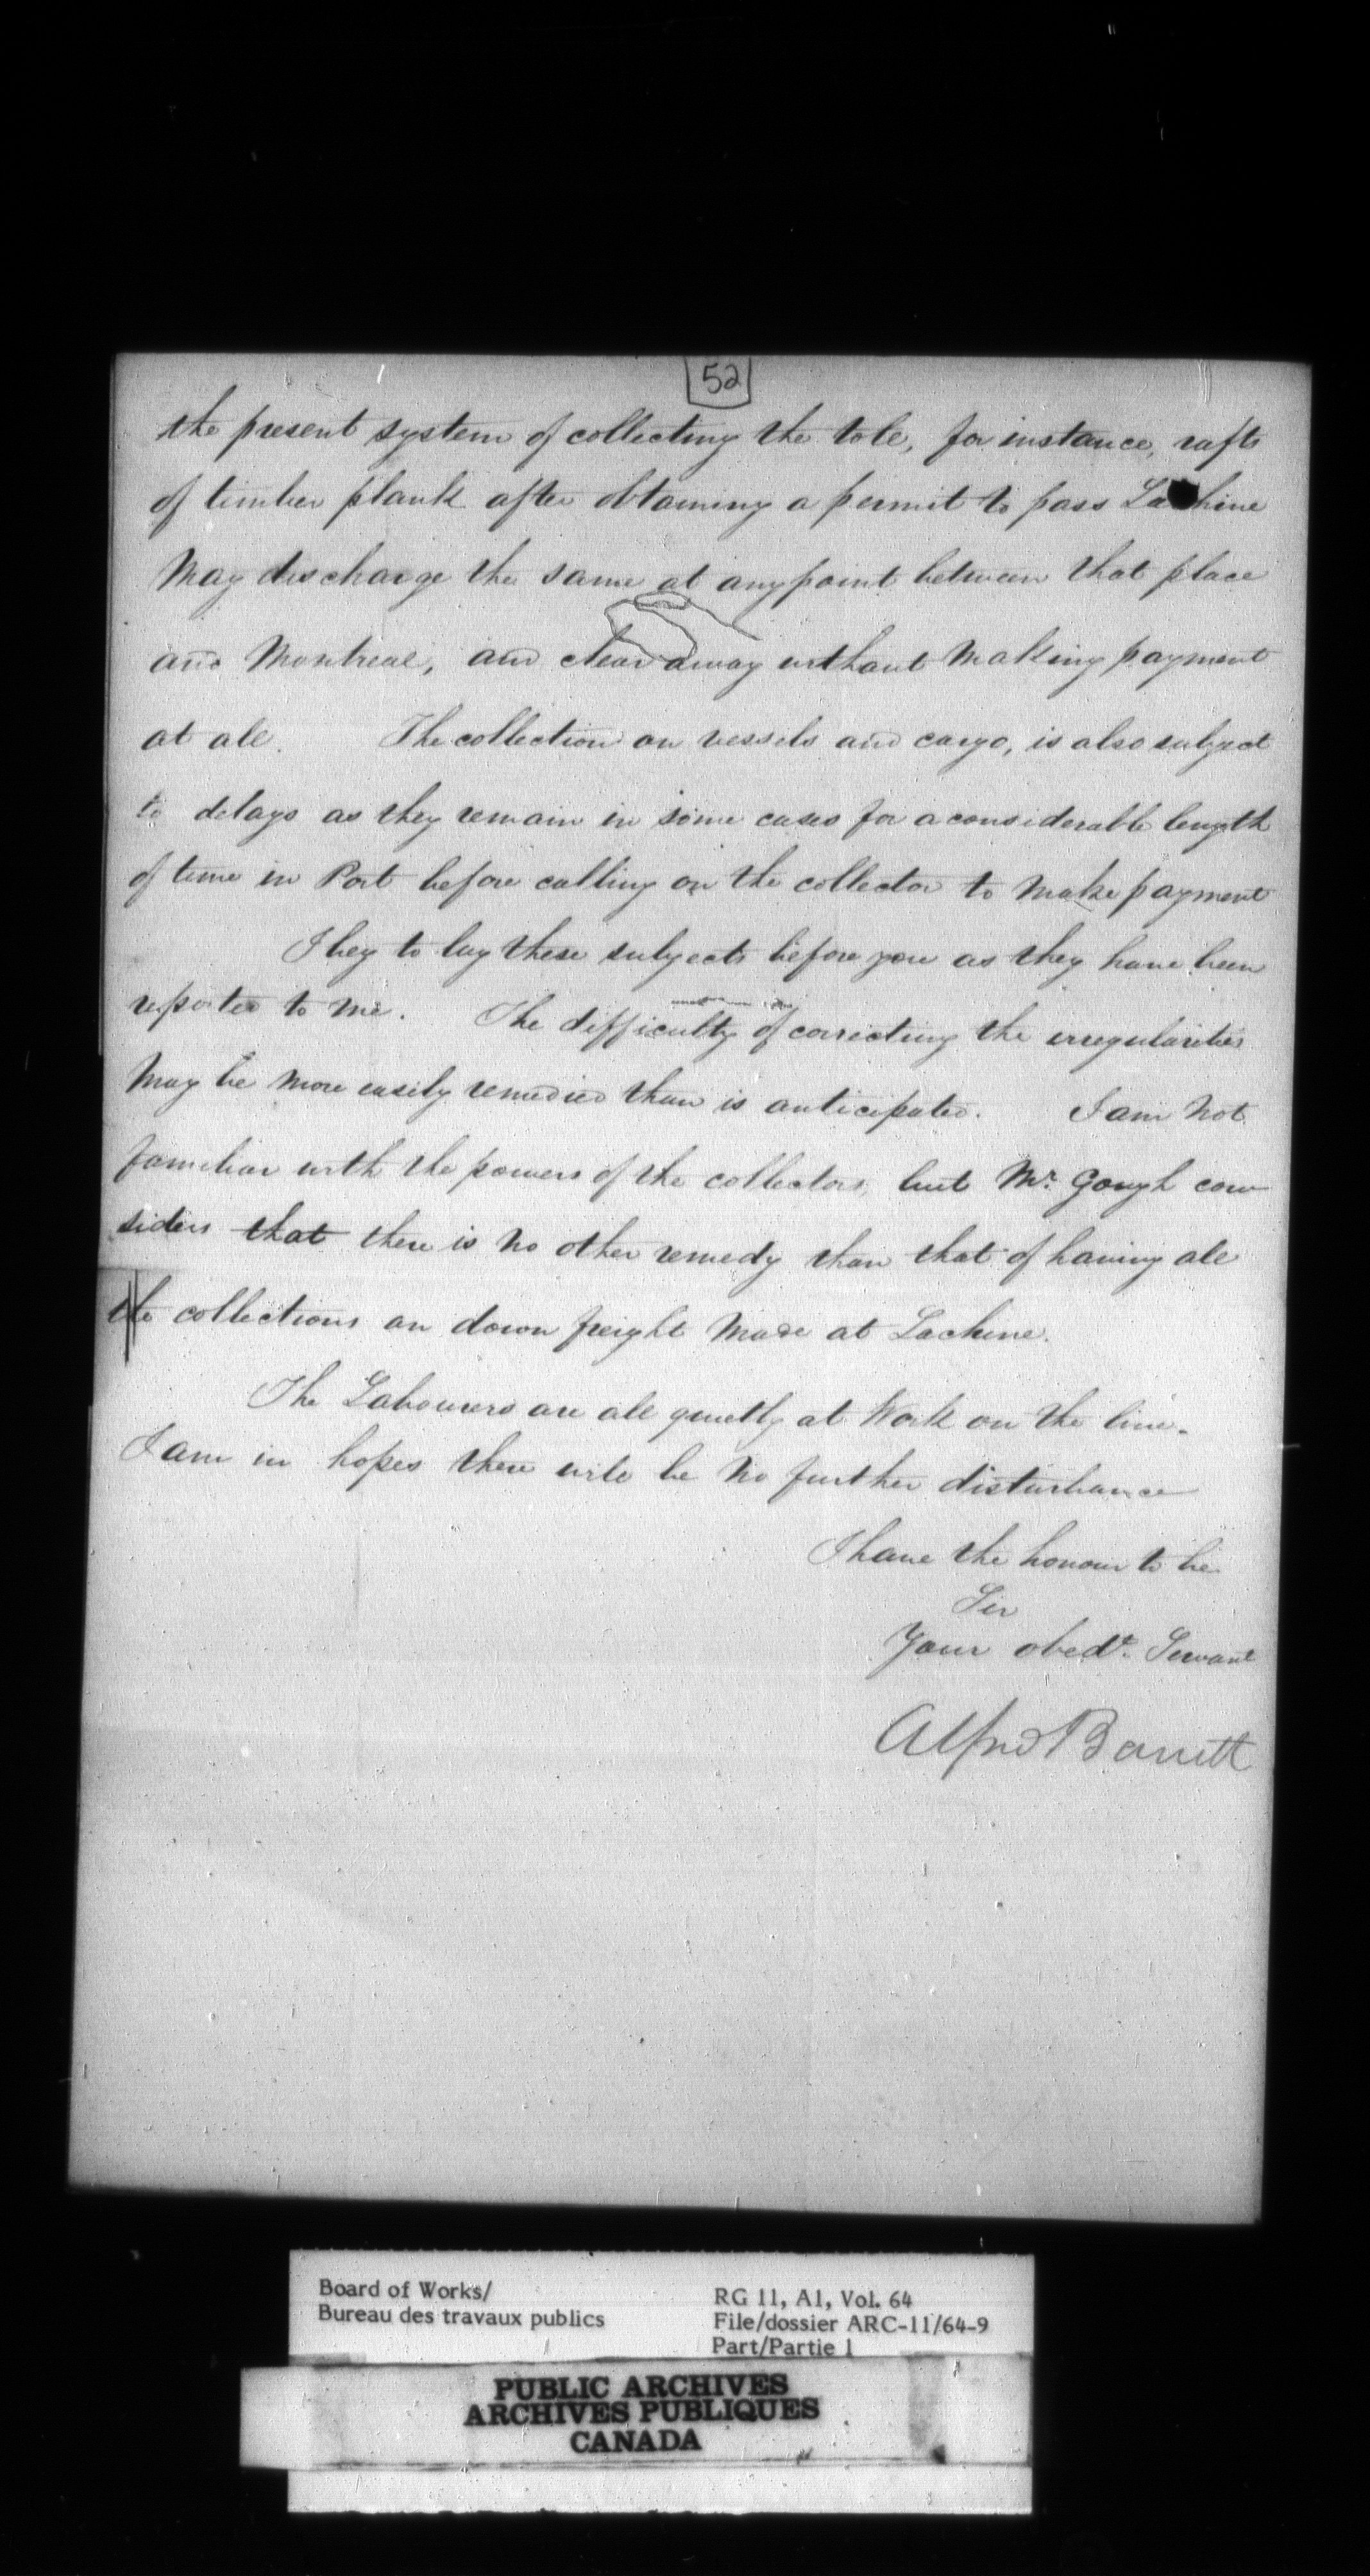 52
the present system of collecting the tole, for instance, rafts
of timber plank after obtaining a permit to pass Lachine
May discharge the same at any point between that place
and Montreal, and clear away without Making payment
at all. The collection on vessels and cargo, is also subject
to delays as they remain in some cases for a considerable length
of time in Port before calling on the collector to Make payment
I beg to lay these subjects before you as they have been
reported to me. The difficulty of correcting the irregularities
May be More easily remedied than is anticipated. I am Not
familiar with the powers of the collectors, but Mr. Gough con
siders that there is no other remedy than that of having all
the collections on down freight Made at Lachine.
The Labourers are all quietly at Work on the line.
I am in hopes there will be No further disturbance
I have the honour to be
Sir
Your obedt. Servant
Alfred Barrett
Board of Works/
Bureau des travaux publics
RG 11, A1, Vol. 64
File/dossier ARC-11/64-9
Part/Partie 1
PUBLIC ARCHIVES
ARCHIVES PUBLIQUES
CANADA